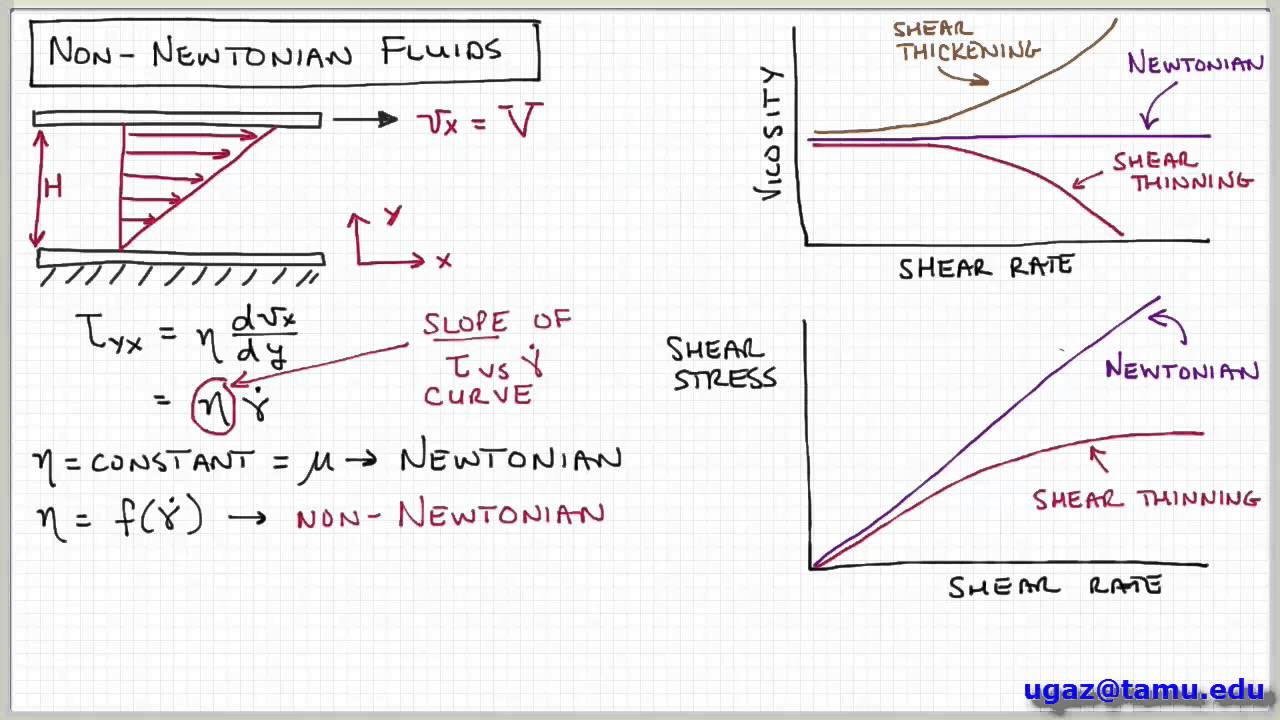 NON-NEWTONIAN FLUIDS
vx = V
H
y
x
τyx = η dvx/dy
= η γ̇
SLOPE OF
τ vs γ̇
CURVE
η = CONSTANT = μ → NEWTONIAN
η = f(γ̇) → NON-NEWTONIAN
SHEAR
THICKENING
NEWTONIAN
SHEAR
THINNING
VICOSITY
SHEAR RATE
SHEAR
STRESS
NEWTONIAN
SHEAR THINNING
SHEAR RATE
ugaz@tamu.edu